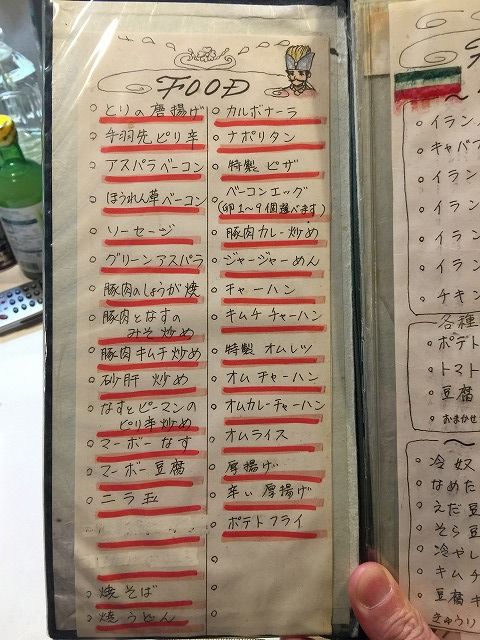 FOOD
とりの唐揚げ
手羽先ピリ辛
アスパラベーコン
ほうれん草ベーコン
ソーセージ
グリーンアスパラ
豚肉のしょうが焼
豚肉となすの
みそ炒め
豚肉キムチ炒め
砂肝炒め
なすとピーマンの
ピリ辛炒め
マーボーなす
マーボー豆腐
ニラ玉
焼そば
焼うどん
カルボナーラ
ナポリタン
特製ピザ
ベーコンエッグ
(卵1～9個選べます)
豚肉カレー炒め
ジャージャーめん
チャーハン
キムチチャーハン
特製オムレツ
オムチャーハン
オムカレーチャーハン
オムライス
厚揚げ
辛い厚揚げ
ポテトフライ
イラン
キャバ
イラン
イラン
イラン
イラン
チキン
各種
ポテト
トマト
豆腐
おまかせ
冷奴
なめた
えだ豆
そら豆
冷やし
キムチ
豆腐キ
きゅうり